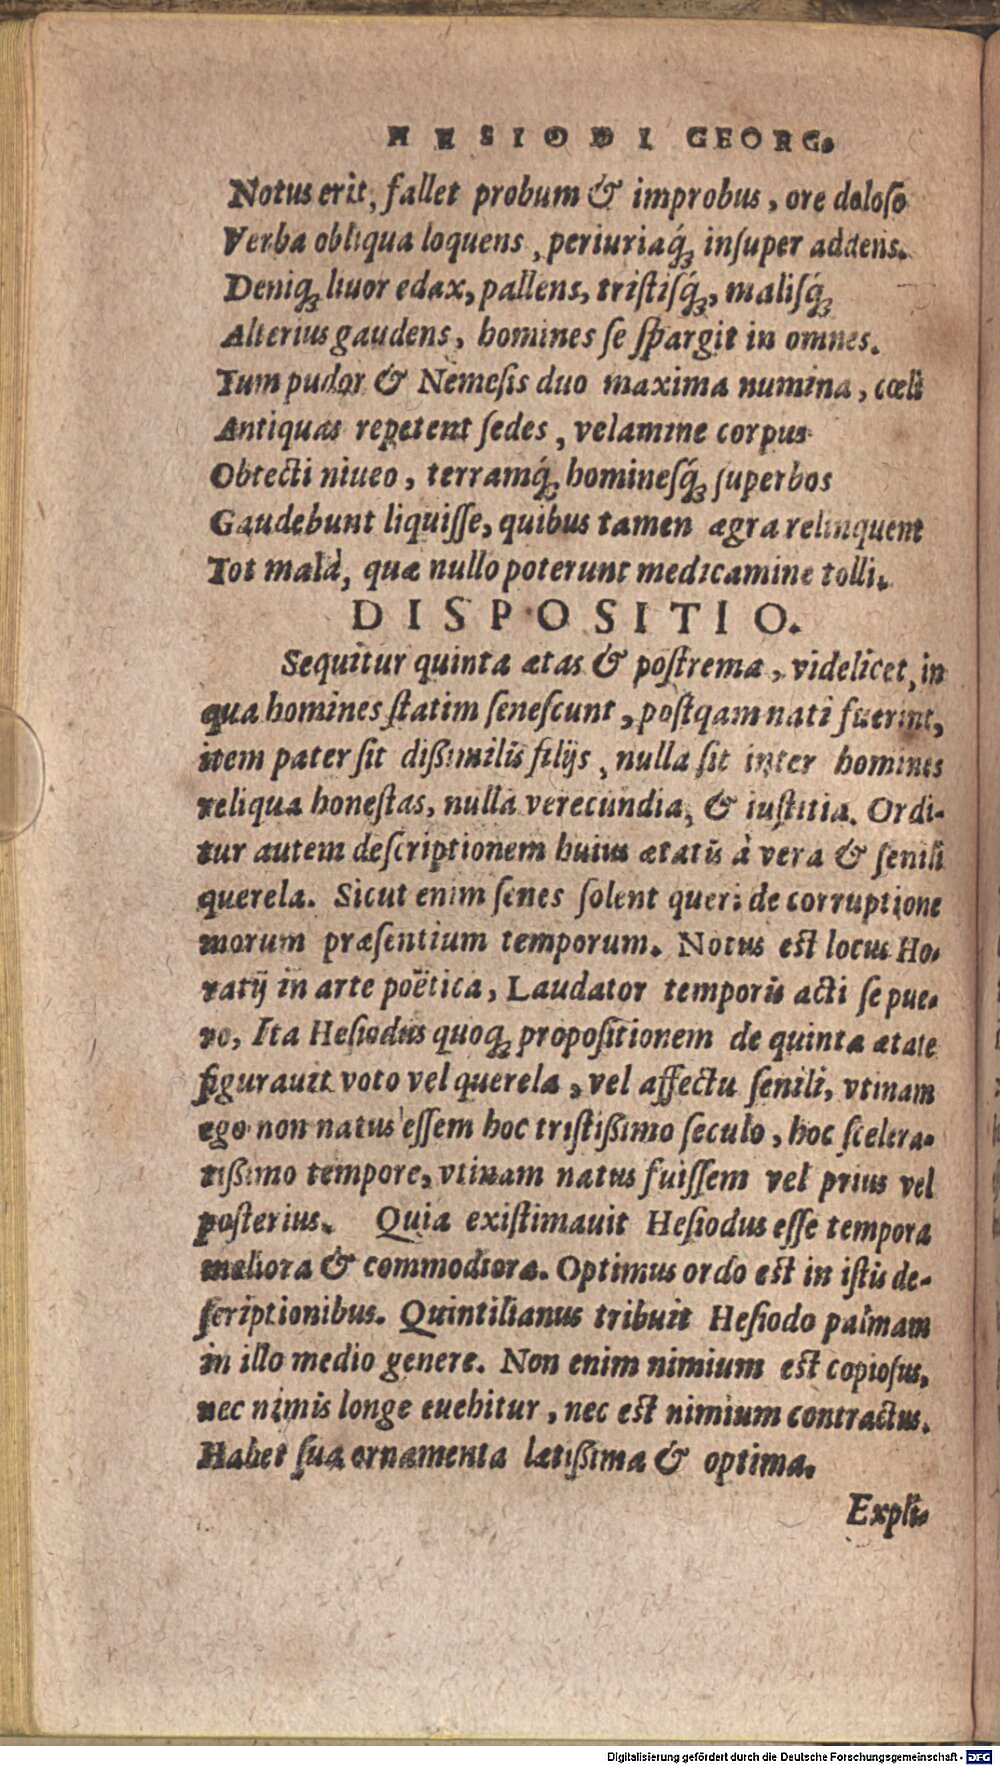 HESIODI GEORG.
Notus erit, fallet probum & improbus, ore doloso
Verba obliqua loquens, periuriaq́ꝫ insuper addens.
Deniqꝫ liuor edax, pallens, tristisq́ꝫ, malisq́ꝫ
Alterius gaudens, homines se spargit in omnes.
Tum pudor & Nemesis duo maxima numina, cœli
Antiquas repetent sedes, velamine corpus
Obtecti niueo, terramq́ꝫ hominesq́ꝫ superbos
Gaudebunt liquisse, quibus tamen ægra relinquent
Tot mala, quæ nullo poterunt medicamine tolli.
DISPOSITIO.
Sequitur quinta ætas & postrema, videlicet, in
qua homines statim senescunt, postqam nati fuerint,
item pater sit dißimilis filijs, nulla sit inter homines
reliqua honestas, nulla verecundia, & iustitia. Ordi-
tur autem descriptionem huius ætatis à vera & senili
querela. Sicut enim senes solent queri de corruptione
morum præsentium temporum. Notus est locus Ho-
ratij in arte poëtica, Laudator temporis acti se pue-
ro, Ita Hesiodus quoqꝫ propositionem de quinta ætate
figurauit voto vel querela, vel affectu senili, vtinam
ego non natus essem hoc tristißimo seculo, hoc scelera-
tißimo tempore, vtinam natus fuissem vel prius vel
posterius. Quia existimauit Hesiodus esse tempora
meliora & commodiora. Optimus ordo est in istis de-
scriptionibus. Quintilianus tribuit Hesiodo palmam
in illo medio genere. Non enim nimium est copiosus,
nec nimis longe euehitur, nec est nimium contractus.
Habet sua ornamenta lætißima & optima.
Expli-
Digitalisierung gefördert durch die Deutsche Forschungsgemeinschaft - DFG